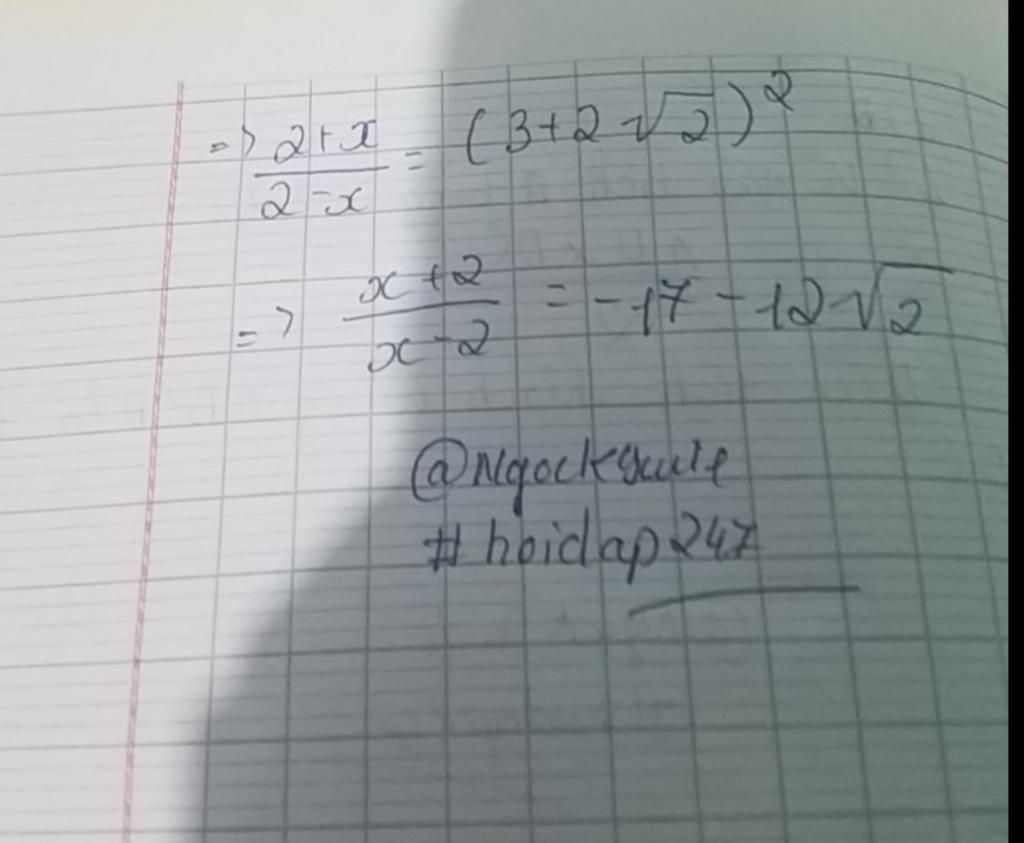 => 2+x / 2-x = (3+2√2)²
=> x+2 / x-2 = -17-12√2
@Ngockscute
#hoidap247